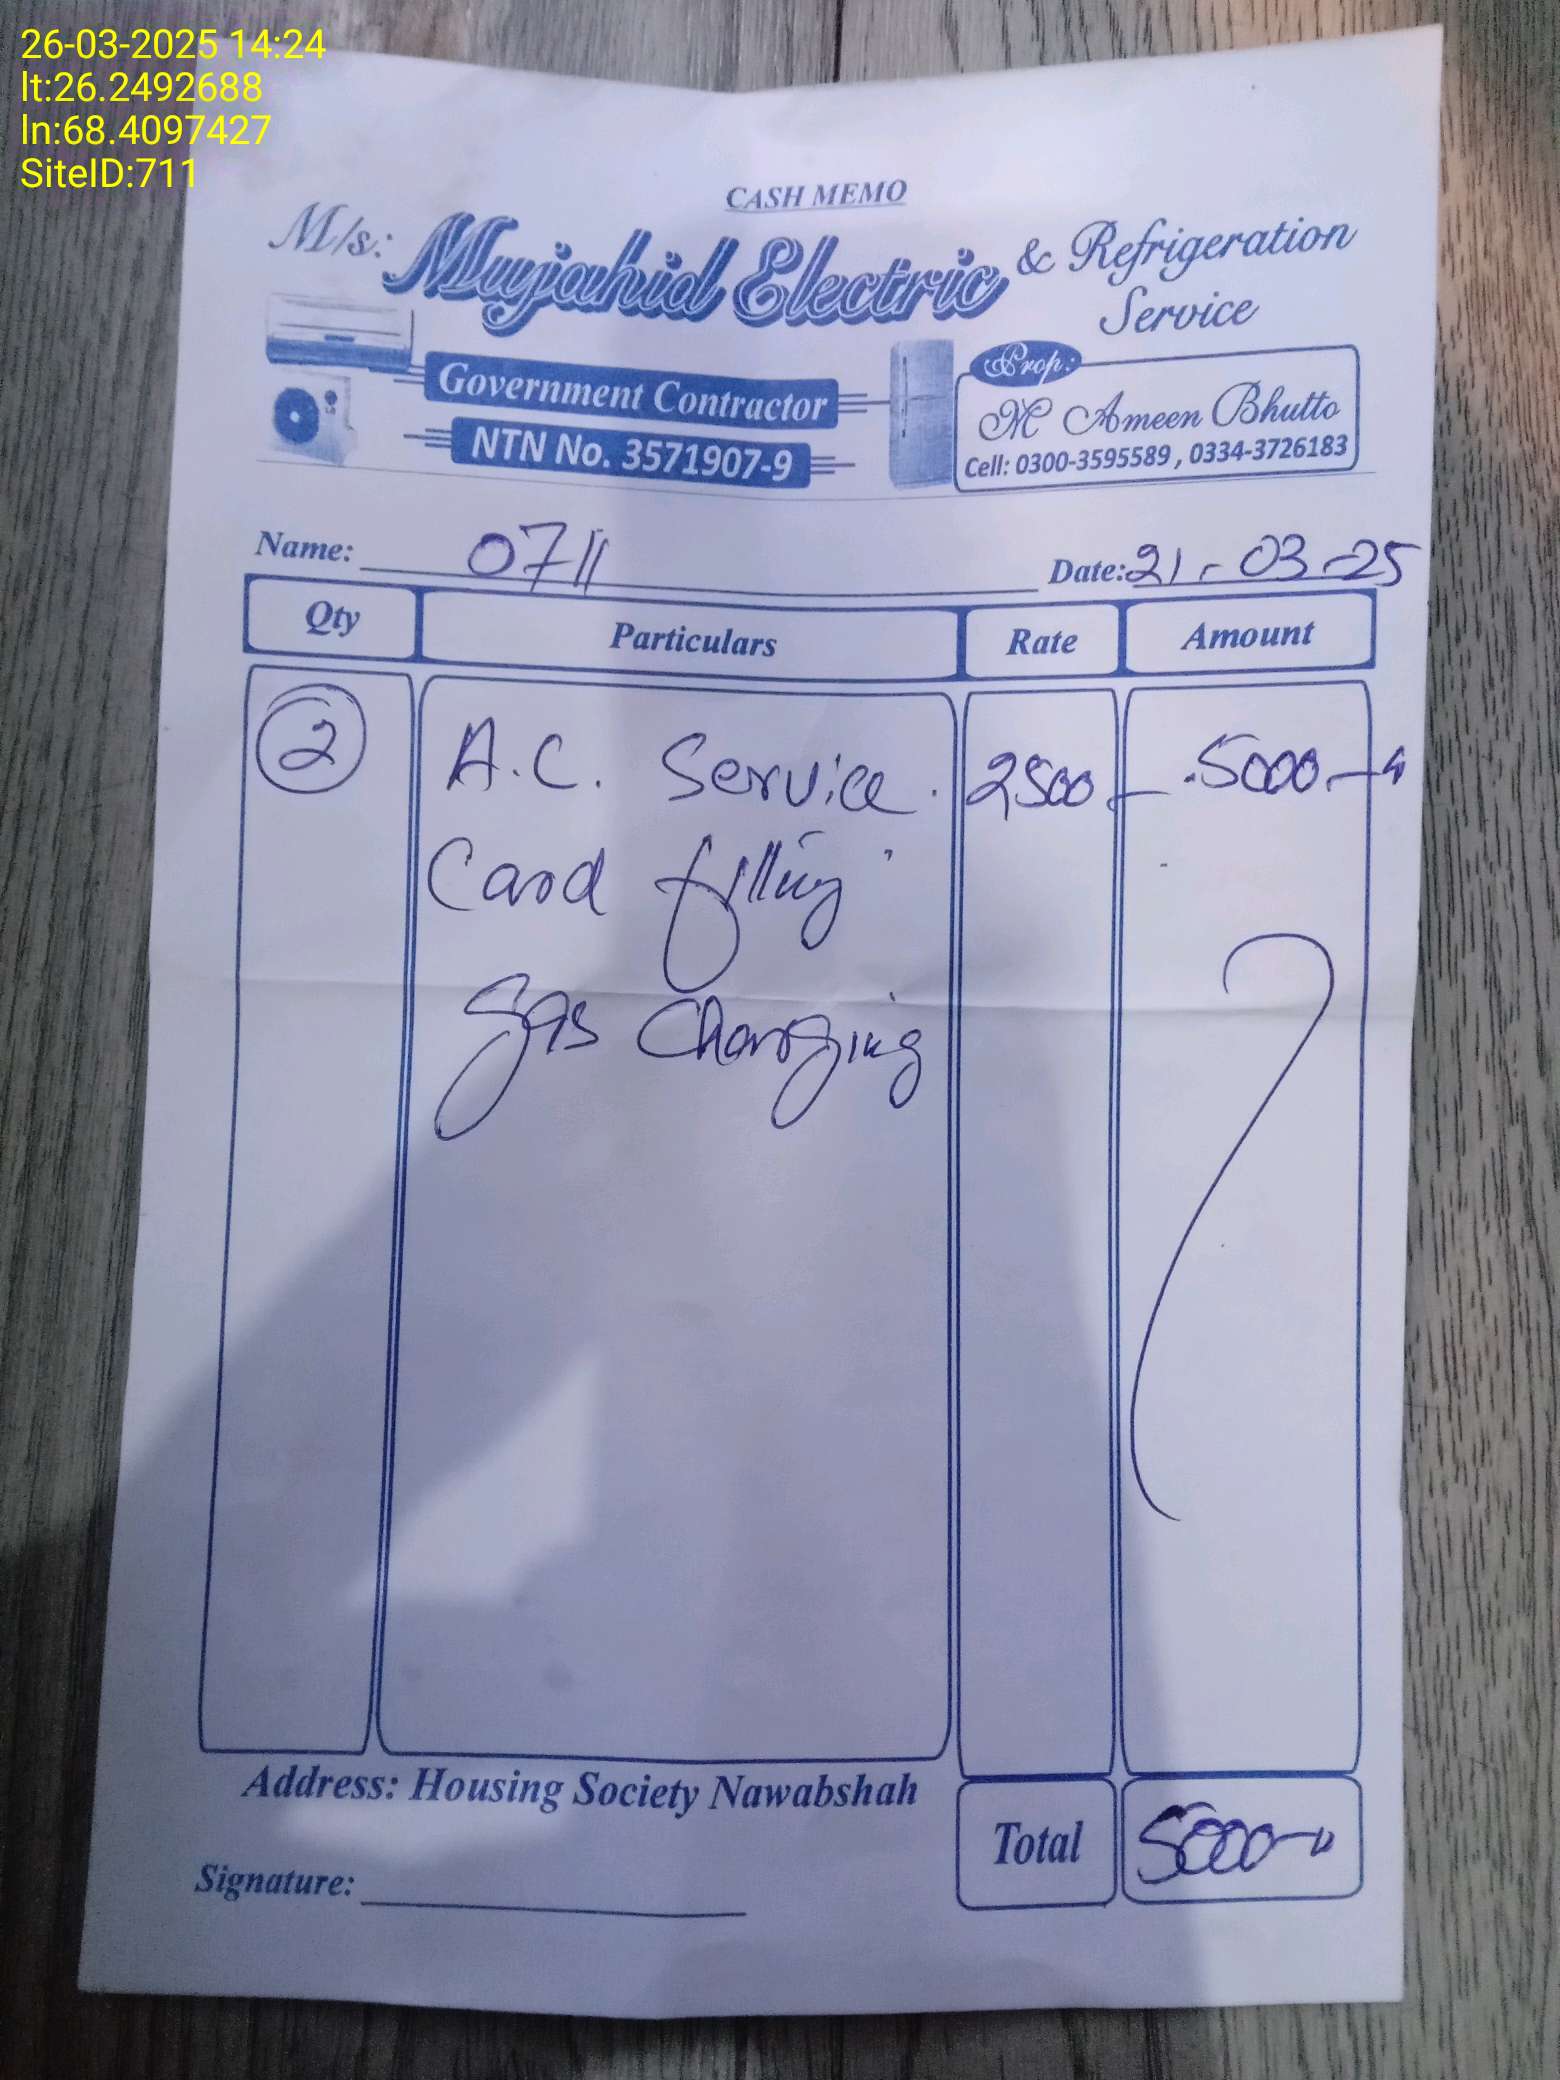 26-03-2025 14:24
lt:26.2492688
ln:68.4097427
SiteID:711
CASH MEMO
M/s: Mujahid Electric & Refrigeration
Service
Government Contractor
NTN No. 3571907-9
Prop:
M Ameen Bhutto
Cell: 0300-3595589 , 0334-3726183
Name: 0711 Date: 21-03-25
Qty Particulars Rate Amount
2 A.C. Service. 2500- 5000-"
Card filling
Gas Charging
Address: Housing Society Nawabshah
Total 5000-"
Signature: